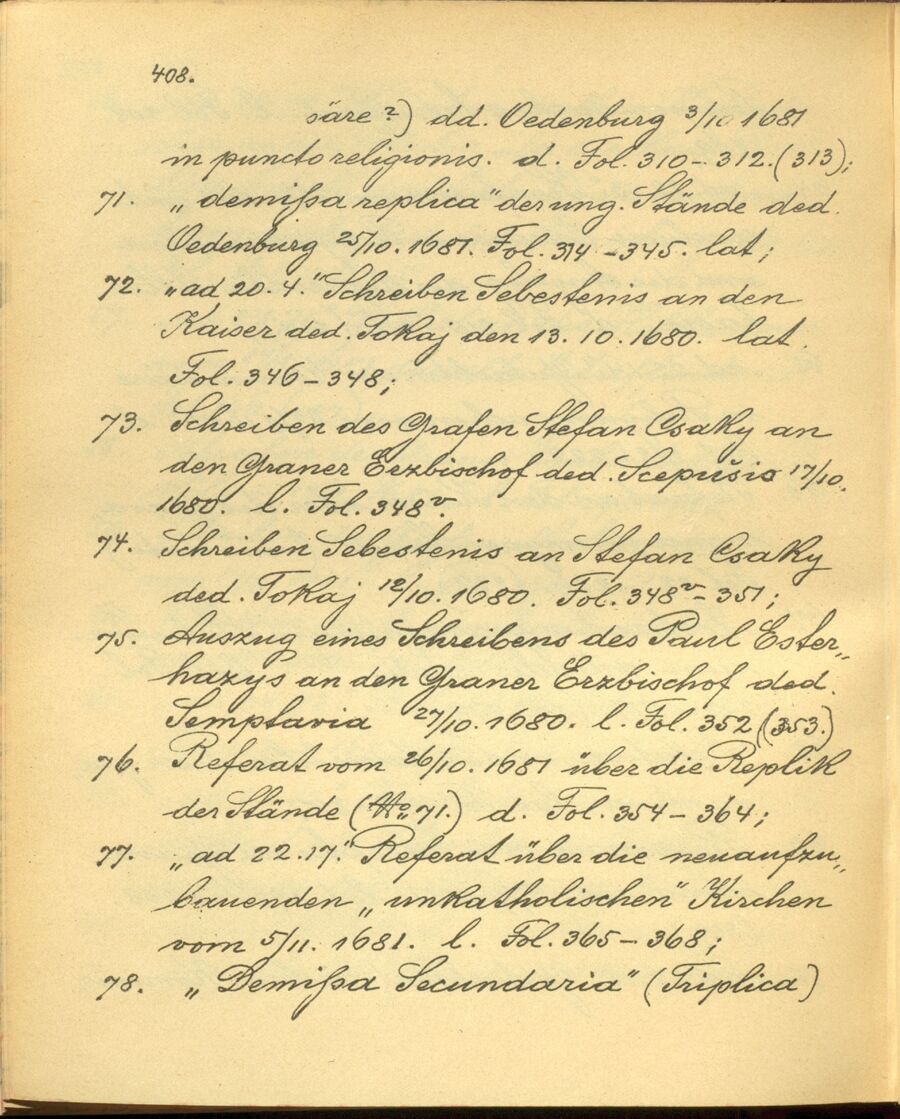 408.
säre?) dd. Oedenburg 3/10 1681
in puncto religionis. d. Fol. 310 – 312. (313);
71. „demißa replica" der ung. Stände ded.
Oedenburg 25/10. 1681. Fol. 314 – 345. lat;
72. „ad 20. 4." Schreiben Sebestenis an den
Kaiser ded. Tokaj den 13. 10. 1680. lat.
Fol. 346 – 348;
73. Schreiben des Grafen Stefan Csaky an
den Graner Erzbischof ded. Scepušio 17/10.
1680. l. Fol. 348v.
74. Schreiben Sebestenis an Stefan Csaky
ded. Tokaj 12/10. 1680. Fol. 348v – 351;
75. Auszug eines Schreibens des Paul Ester„
hazys an den Graner Erzbischof ded.
Semptavia 27/10. 1680. l. Fol. 352 (353.)
76. Referat vom 26/10. 1681 über die Replik
der Stände (No 71.) d. Fol. 354 – 364;
77. „ad 22. 17." Referat über die neuaufzu„
bauenden „unkatholischen" Kirchen
vom 5/11. 1681. l. Fol. 365 – 368;
78. „Demißa Secundaria" (Triplica)